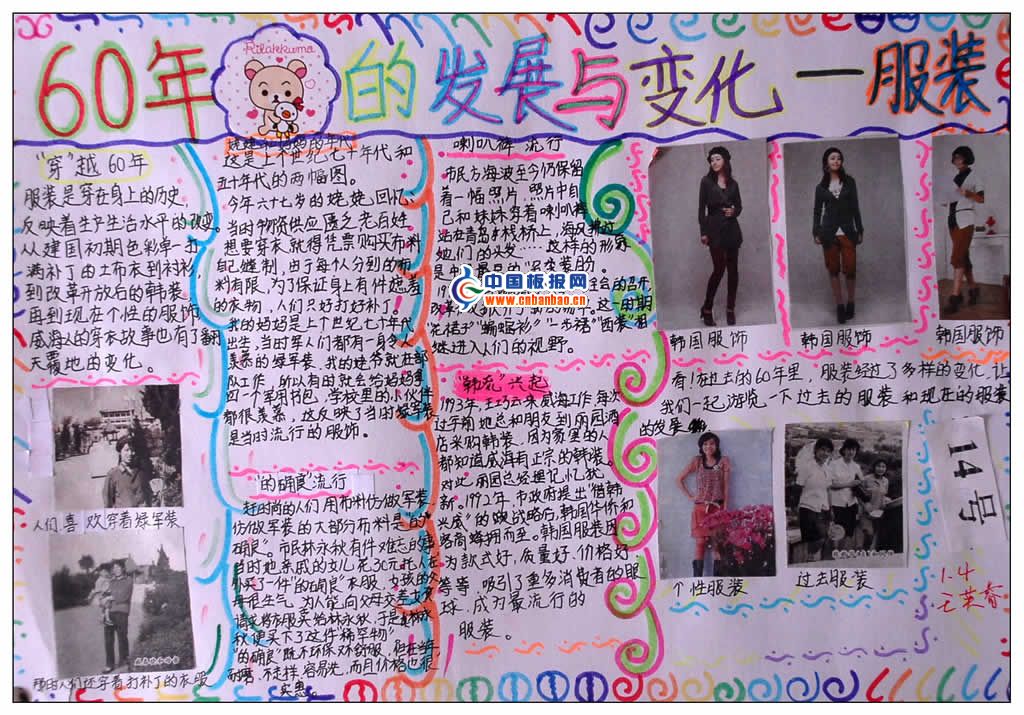 60年
Rilakkuma
的发展与变化—服装
"穿"越60年
服装是穿在身上的历史,
反映着生产生活水平的改变。
从建国初期色彩单一打
满补丁由土布衣到衬衫,
到改革开放后的韩装,
再到现在个性的服饰
威海人的穿衣故事也有了翻
天覆地的变化。
人们喜欢穿着绿军装
人们还穿着打补丁的衣服
姥姥和妈妈的年代
这是上个世纪七十年代和
五十年代的两幅图。
今年六十七岁的姥姥回忆,
当时物资供应匮乏老百姓
想要穿衣就得凭票购买布料
自己缝制,由于每个人分到的布
料有限,为了保证身上有件
的衣物,人们只好打好补丁。
我的妈妈是上个世纪七十年代
出生,当时军人们都有一身令人
羡慕的绿军装,我的姥爷就在部
队工作,所以有的就会给妈妈拿
回一个军用书包,学校里的小伙伴
都很羡慕,这反映了当时绿军装
是当时流行的服饰。
"的确良"流行
赶时尚的人们用布料仿做军装,
仿做军装的大部分布料是"的
确良"。市民林永秋有件难忘的事
当时她亲戚的女儿花30元托人在
外买了一件"的确良"衣服,女孩的父
母很生气,为人能向父母交差女孩
请求将衣服卖给林永秋,于是林永
秋便买下了这件"稀罕物"
"的确良"既不环保亦不舒服,但在当年
耐磨,不走样,容易洗,而且价格也很
实惠。
喇叭裤 流行
市民方海波至今仍保留
着一幅照片,照片中自
己和妹妹穿着喇叭裤
站在青岛木栈桥上,海风
她们的头发……这样的形象
是
花裙子"蝙蝠衫""一步裙""西装"相
继进入人们的视野。
"韩流"兴起
1993年,王巧云来威海工作,每次
过年前她总和朋友到丽园酒
店采购韩装,因为家里的人
都知道威海有正宗的韩装。
对此,丽园总经理记忆犹
新。1992年,市政府提出"借韩
兴威"的战略后,韩国华侨和
客商蜂拥而至。韩国服装因
为款式好,质量好,价格好
等等,吸引了更多消费者的眼
球,成为最流行的
服装。
中国板报网
www.cnbanbao.cn
韩国服饰
韩国服饰
韩国服饰
看!在过去的60年里,服装经过了多样的变化,让
我们一起游览一下过去的服装和现在的服装
的发展
个性服装
过去服装
14号
1.4
王英春